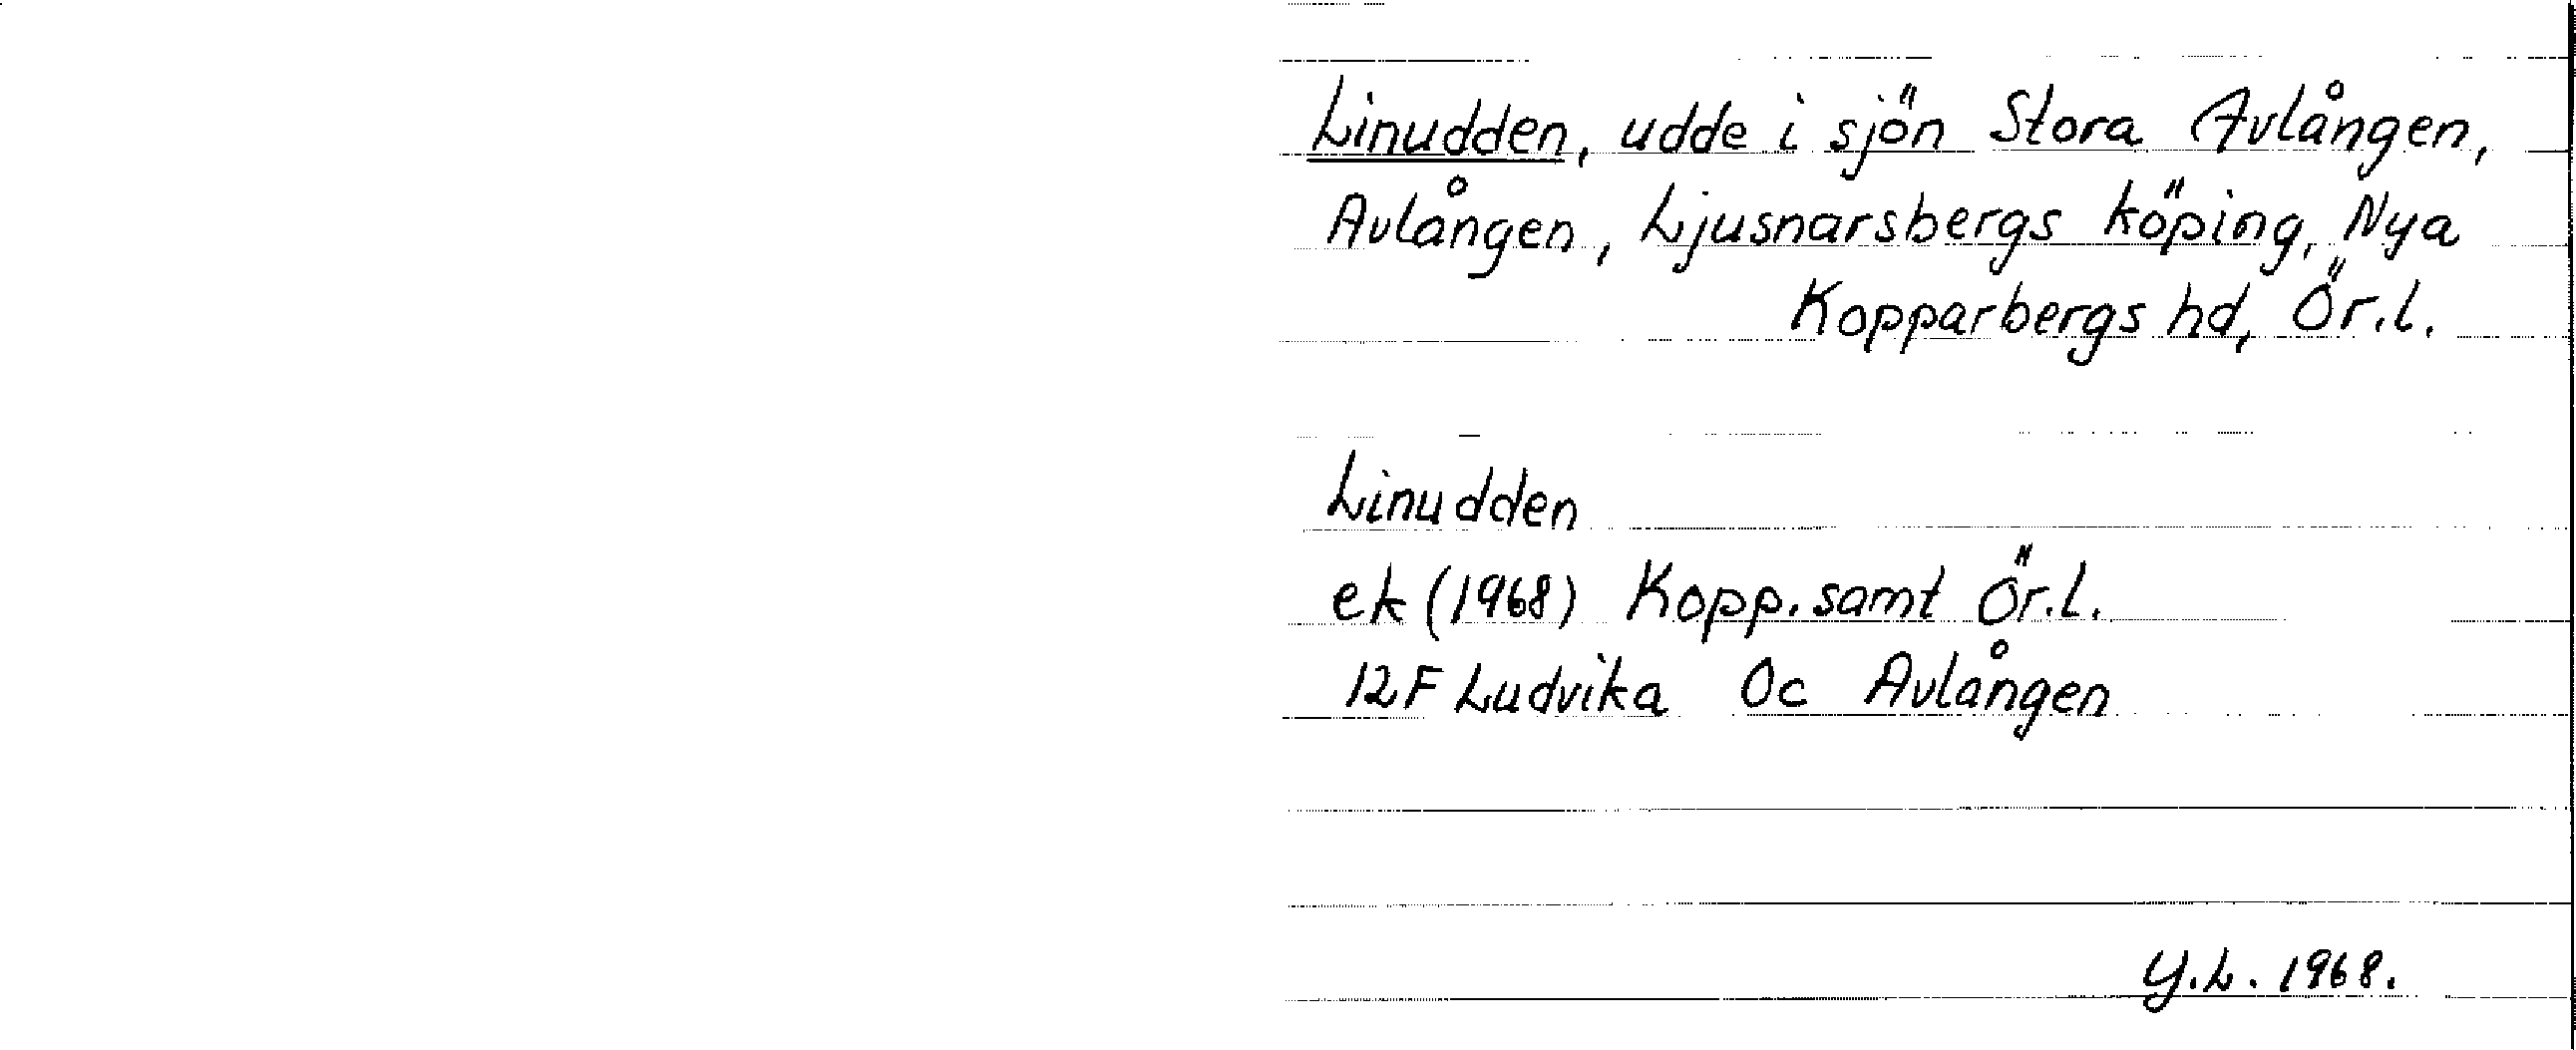 Linudden, udde i sjön Stora Avlången,
Avlången, Ljusnarsbergs köping, Nya
Kopparbergs hd, Ör.l.
Linudden
ek (1968) Kopp. samt Ör.l.
12F Ludvika 0c Avlången
Y.L. 1968.